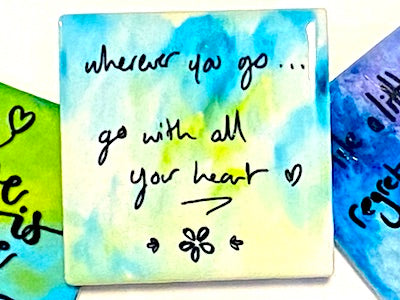 wherever you go ...
go with all
your heart
is
regret